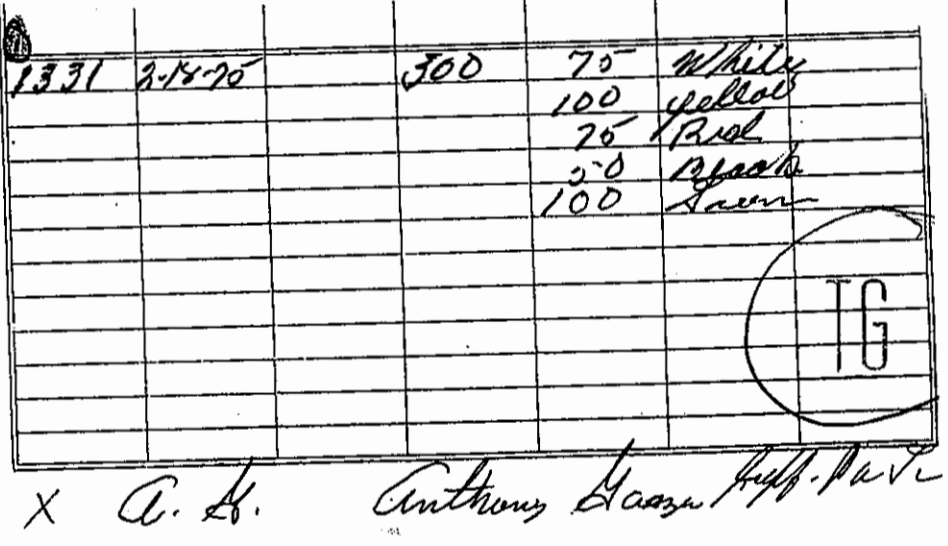 1331 2-18-75 300 75 White
100 yellow
75 Red
50 Black
100 Green
TG
X A. G. Anthony